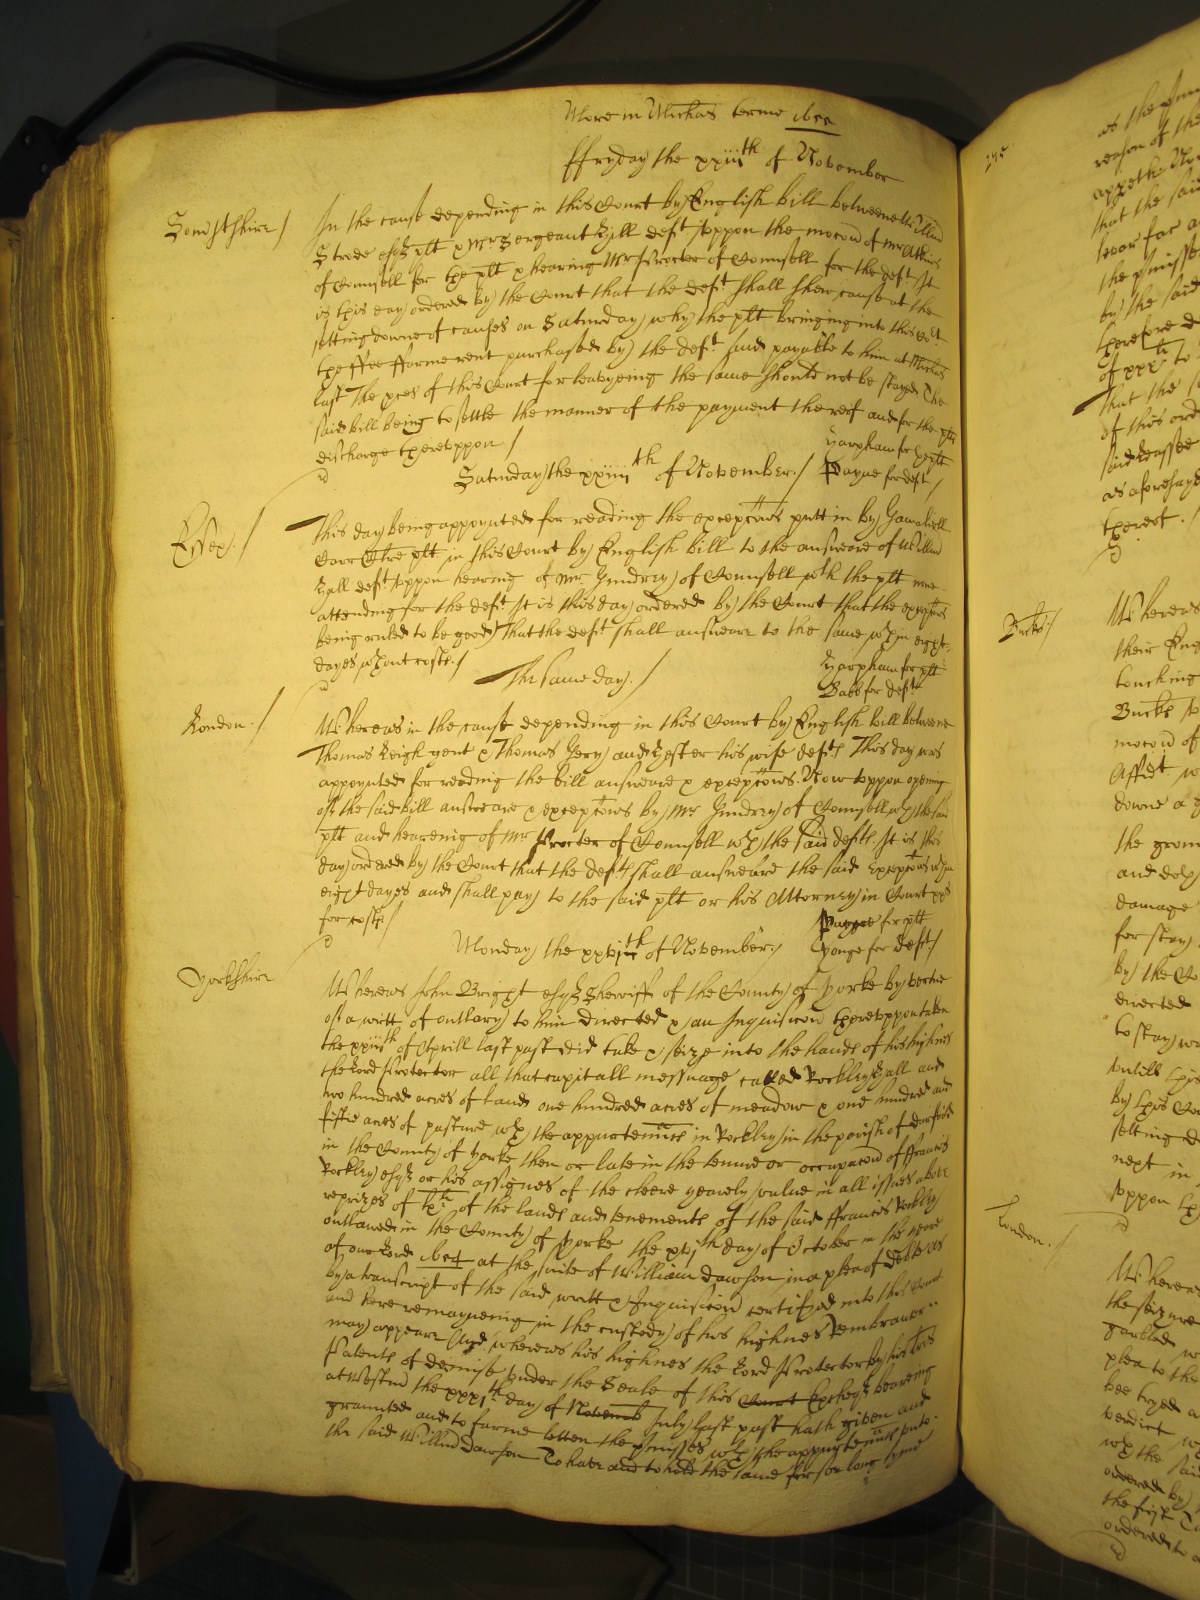 More in Michas terme 1655
ffryday the xxiiith of November
Somstshire / In the cause depending in this Court by English bill betweene Willm
Strode esqz plt & Mr Sergeant Hill deft uppon the mocon of Mr Atkins
of Counsell for the plt & hearing Mr Procter of Counsell for the deft It
is this day ordered by the Court that the deft shall shew cause at the
setting downe of causes on Saturday why the plt bringing into this Cot
the ffee ffarme rent purchased by the deft said payable to him at Michas
last The pces of this Court for leavyeing the same should not be stayed The
said bill being to settle the manner of the payment thereof and for the plts
discharge thereuppon /
Harpham for the plt
Payne for deft /
Saturday the xxiiiith of November /
Essex / This day being appoynted for reading the exceptions putt in by Gamaliell
Carr plt in this Court by English bill to the answeare of Willm
Hall deft uppon hearing of Mr Gundrey of Counsell wth the plt none
attending for the deft It is this day ordered by the Court that the exceptions
being ruled to be good That the deft shall answeare to the same wthin eight
dayes wthout costs /
Harpham for plt
Babb for deft
The same day /
London / Whereas in the cause depending in this Court by English bill betweene
Thomas Leigh gent & Thomas Gery and Hester his wife defts This day was
appoynted for reading the bill answeare & exceptions. Now uppon opening
of the said bill answeare & exceptions by Mr Gundrey of Counsell wth the said
plt and heareing of Mr Procter of Counsell wth the said defts. It is this
day ordered by the Court that the defts shall answeare the said Exceptions wthin
eight dayes and shall pay to the said plt or his Attorney in Court xxs
for costs /
for plt
Yonge for defts /
Monday the xxvith of November /
Yorkshire Whereas John Bright esqz Sherriffe of the County of Yorke by vertue
of a writt of outlary to him directed & an Inquisicon thereuppon taken
the xxiiith of Aprill last past did take & seize into the hands of his highnes
the Lord Protector all that capitall messuage called Rockley Hall and
two hundred acres of land one hundred acres of meadow & one hundred and
fiftie acres of pasture wth the appurtenncs in Rockley in the parish of
in the County of Yorke then or late in the tenure or occupacon of ffrancis
Rockley esqz or his assignes of the cleere yearely value in all issues above
reprizes of of the lands and tenements of the said ffrancis Rockley
outlawed in the County of Yorke the xvith day of October in the yeare
of our Lord 1654 at the suite of William Dawson in a plea of debt as
by a transcript of the said writt & Inquisicon certifyed into this Court
and here remayneing in the custody of his highnes Remembrancer
may appeare And whereas his highnes the Lord Protector by his tres
Patents of demise under the Seale of this Court Excheqz beareing
at Westm the xxxith day of Novemb July last past hath given and
graunted and to farme letten the pmisses wth the appurtenncs unto
the said Willm Dawson To have and to hold the same for soe long tyme
245
as the
reason of the
that the said
the pmisses
by the said
therefore
of xxxli to
that the
of this ord
said Leassee
as aforesayd
thereof. /
Bucks / Whereas
their Eng
touching
Bucks
mocon of
Affidt
downe a
the groun
and
damage
for stay
by the Co
directed
to stay
untill this
by this Co
setting do
next in
uppon
London. / Whereas
the seizure
plea to the
bee tryed a
verdict
wth the said
ordered by
the first
ordered to